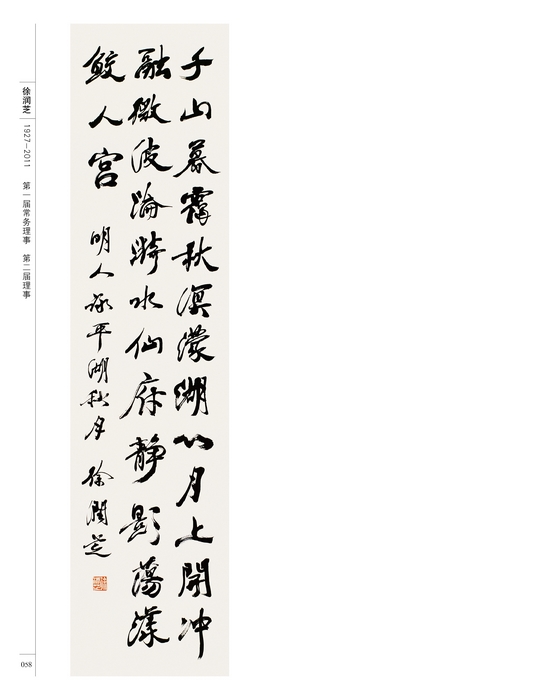 徐润芝
1927—2011
第一届常务理事 第二届理事
千山暮靄秋溟濛湖心月上開冲
融微波淪漪水仙府静影蕩漾
鮫人宫 明人詠平湖秋月 徐潤芝
058